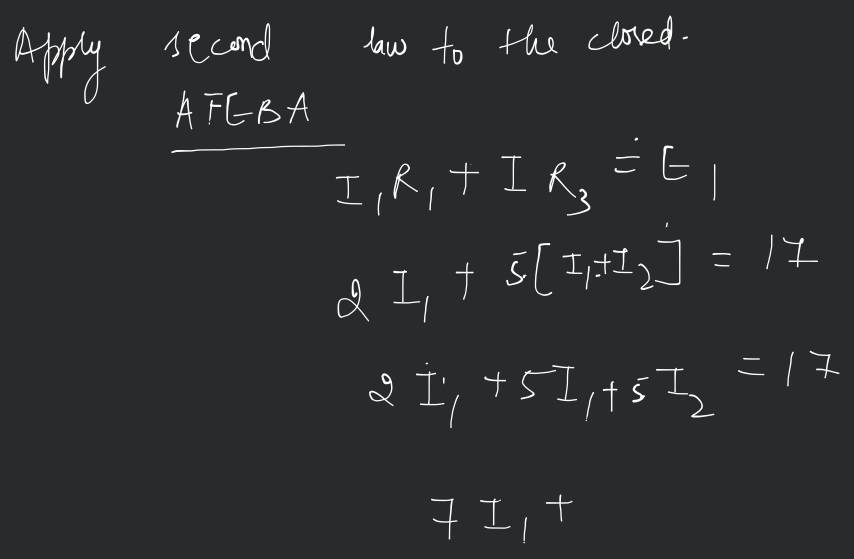 Apply second law to the closed.
AFEBA
I₁R₁ + I R₃ = E₁
2 I₁ + 5[I₁+I₂] = 17
2 I₁ + 5I₁ + 5I₂ = 17
7 I₁ +